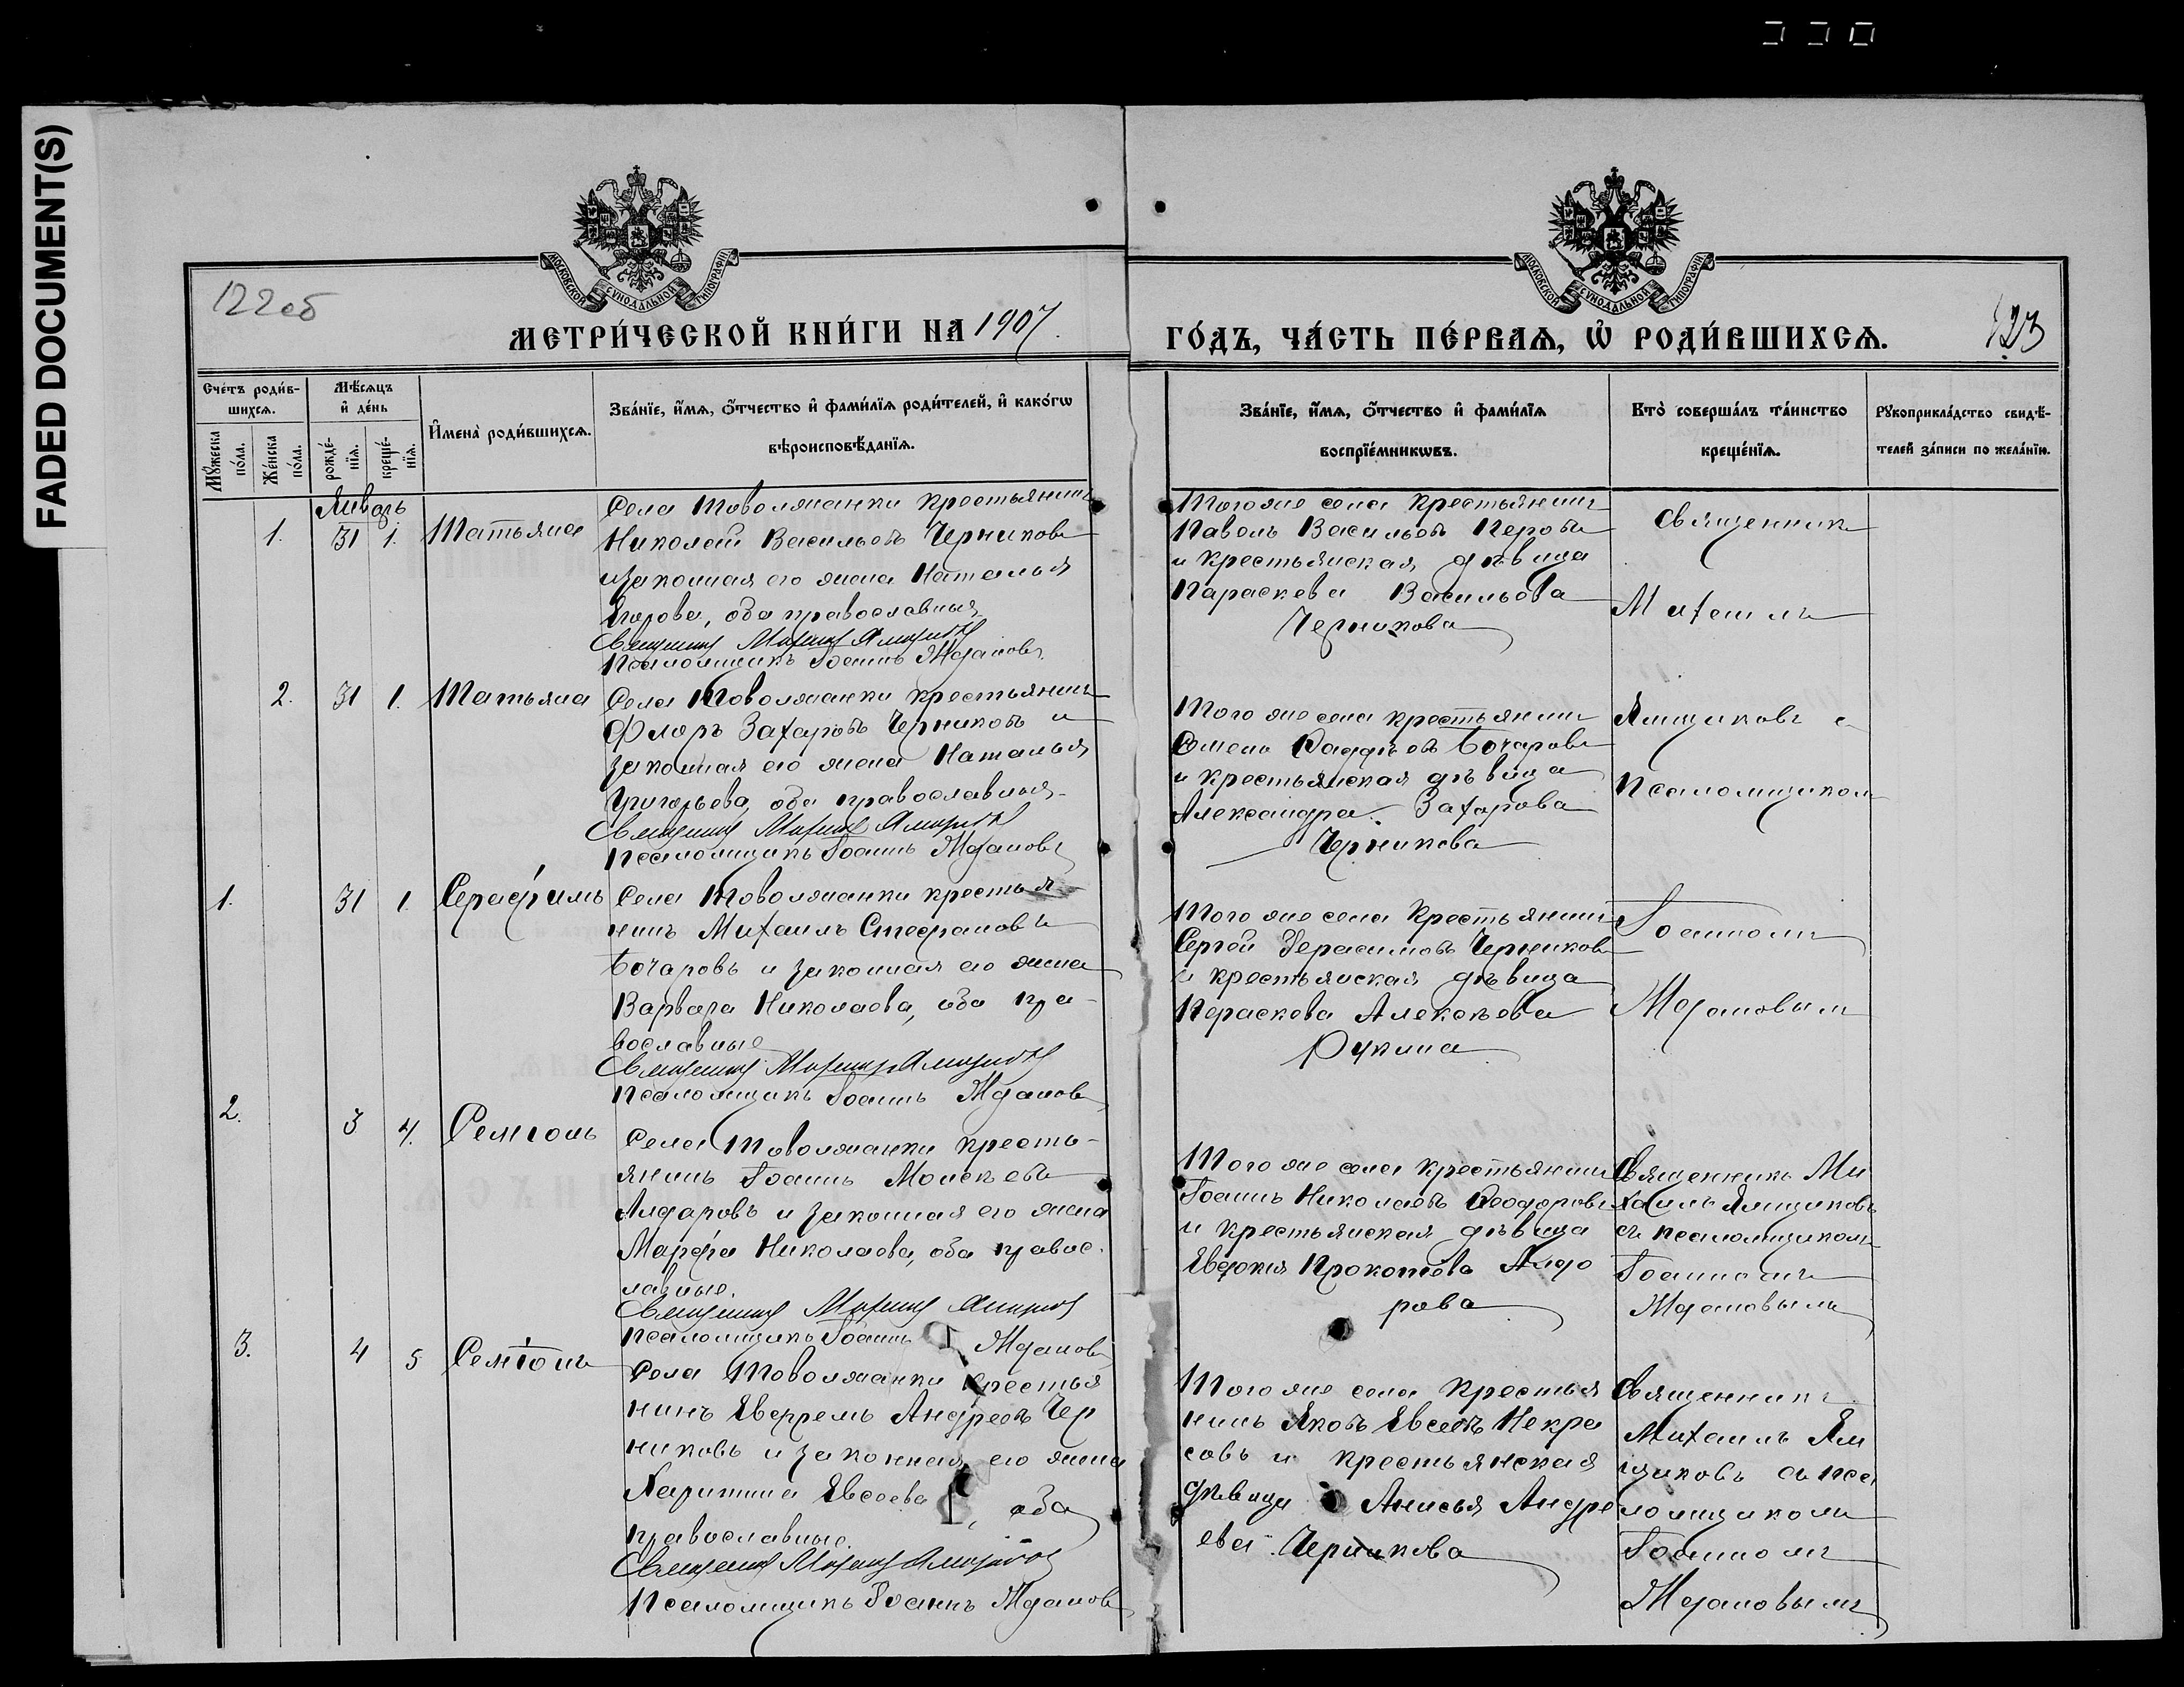 FADED DOCUMENT(S)
МОСКОВСКОЙ СѴНОДАЛЬНОЙ ТИПОГРАФІИ
МОСКОВСКОЙ СѴНОДАЛЬНОЙ ТИПОГРАФІИ
122об
МЕТРИ́ЧЕСКОЙ КНИ́ГИ НА 1907.
ГО́ДЪ, ЧА́СТЬ ПЕ́РВАѦ, Ѡ҆ РОДИ́ВШИХСѦ.
123
Сче́тъ роди́в-
шихсѧ.
Мѣ́сѧцъ
и҆ де́нь
Мꙋ́жеска
по́ла.
Же́нска
по́ла.
рожде́-
нїѧ.
креще́-
нїѧ.
И҆мена̀ роди́вшихсѧ.
Зва́нїе, и҆́мѧ, ѻ҆́тчество и҆ фами́лїѧ роди́телей, и҆ како́гѡ
вѣроисповѣ́данїѧ.
Зва́нїе, и҆́мѧ, ѻ҆́тчество и҆ фами́лїѧ
воспрїе́мникѡвъ.
Кто̀ соверша́лъ та́инство
креще́нїѧ.
Рꙋкоприкла́дство свидѣ́-
телей за́писи по жела́нїю.
Январь
1. 31 1. Татьяна
Села Товолжанки крестьянинъ
Николай Васильевъ Черниковъ
и законная его жена Наталья
Егорова, оба православныя
Священникъ Михаилъ Ямщиковъ
Псаломщикъ Іоаннъ Ждановъ.
Того же села крестьянинъ
Павелъ Васильевъ Перовъ
и крестьянская дѣвица
Параскева Васильева
Черникова
Священникъ
Михаилъ
2. 31 1. Татьяна
Села Товолжанки крестьянинъ
Флоръ Захаровъ Черниковъ и
законная его жена Наталья
Григорьева, оба православныя.
Священникъ Михаилъ Ямщиковъ
Псаломщикъ Іоаннъ Ждановъ
Того же села крестьянинъ
Семенъ Ѳаддѣевъ Бочаровъ
и крестьянская дѣвица
Александра Захарова
Черникова
Ямщиковъ с
Псаломщикомъ
1. 31 1. Серафимъ
Села Товолжанки крестья-
нинъ Михаилъ Стефановъ
Бочаровъ и законная его жена
Варвара Николаева, оба пра-
вославные
Священникъ Михаилъ Ямщиковъ
Псаломщикъ Іоаннъ Ждановъ
Того же села крестьянинъ
Сергѣй Герасимовъ Черниковъ
и крестьянская дѣвица
Параскева Алексѣева
Рукина
Іоанномъ
Ждановымъ
2. 3 4. Семіонъ
Села Товолжанки кресть-
янинъ Іоаннъ Моисѣевъ
Алдаровъ и законная его жена
Марфа Николаева, оба правос-
лавные.
Священникъ Михаилъ Ямщиковъ
Псаломщикъ Іоаннъ Ждановъ
Того же села крестьянинъ
Іоаннъ Николаевъ Ѳеодоровъ
и крестьянская дѣвица
Евдокія Прокопьева Алда
рова
Священникъ Ми
хаилъ Ямщиковъ
съ псаломщикомъ
Іоанномъ
Ждановымъ
3. 4 5 Семіонъ
Села Товолжанки крестья
нинъ Евфремъ Андреевъ Чер
никовъ и законная его жена
Харитина Евсеева, оба
православные.
Священникъ Михаилъ Ямщиковъ
Псаломщикъ Іоаннъ Ждановъ
Того же села крестья
нинъ Яковъ Евсеевъ Некра
совъ и крестьянская
дѣвица Анисья Андре
ева Черникова
Священникъ
Михаилъ Ям
щиковъ съ пса
ломщикомъ
Іоанномъ
Ждановымъ